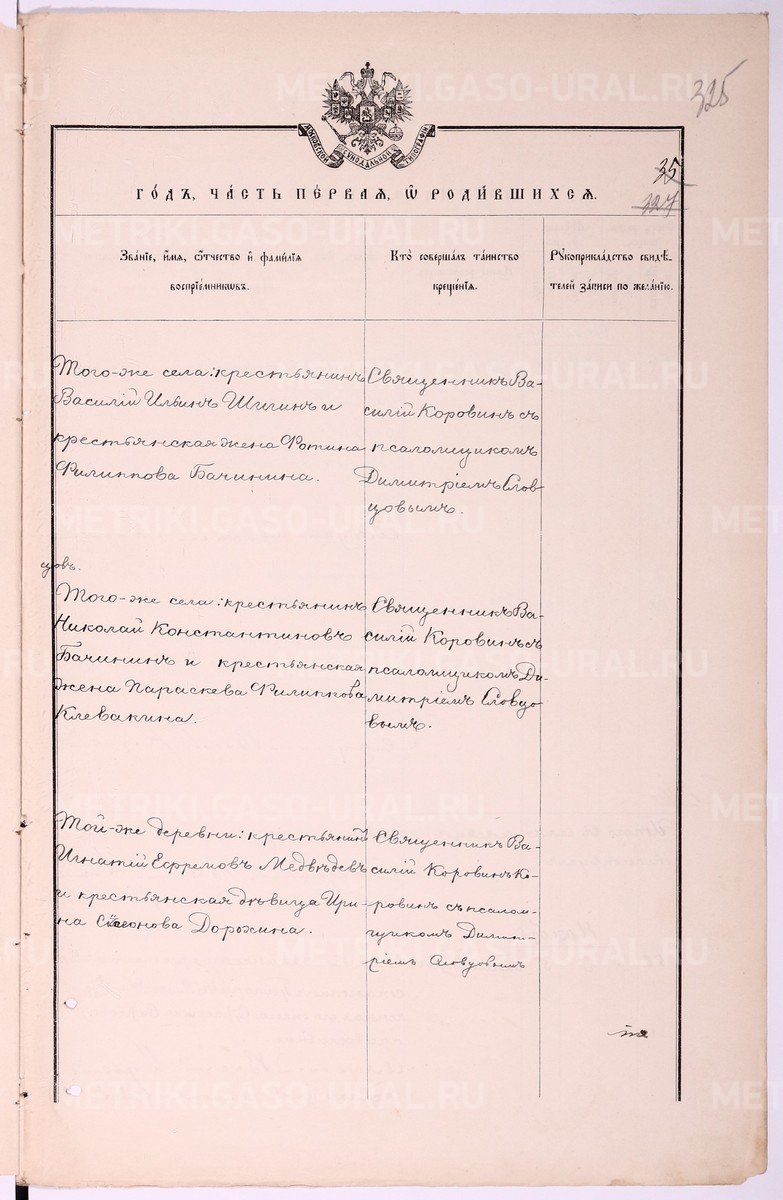 325
МОСКОВСКОЙ СѴНОДАЛЬНОЙ ТИПОГРАФІИ
35
327
ГО́ДЪ, ЧА́СТЬ ПЕ́РВАЯ, Ѡ҆ РОДИ́ВШИХСЯ.
Зва́ніе, и҆́мя, ѻ҆́тчество и҆ фами́лія
воспріе́мниковъ.
Кто̀ соверша́лъ та́инство
креще́нія.
Рꙋкоприкла́дство свидѣ́-
телей за́писи по жела́нію.
Того-же села: крестьянинъ
Василій Ильинъ Шигинъ и
крестьянская жена Фотина
Филиппова Бачинина.
Священникъ Ва-
силій Коровинъ съ
псаломщикомъ
Димитріемъ Слов-
цовымъ.
цовъ.
Того-же села: крестьянинъ
Николай Константиновъ
Бачининъ и крестьянская
жена Параскева Филиппова
Клевакина.
Священникъ Ва-
силій Коровинъ съ
псаломщикомъ Ди-
митріемъ Словцо-
вымъ.
Той-же деревни: крестьянинъ
Игнатій Ефремовъ Медвѣдевъ
и крестьянская дѣвица Ири-
на Симеонова Дорохина.
Священникъ Ва-
силій Коровинъ Ко-
ровинъ съ псалом-
щикомъ Димит-
ріемъ Словцовымъ
METRIKI.GASO-URAL.RU